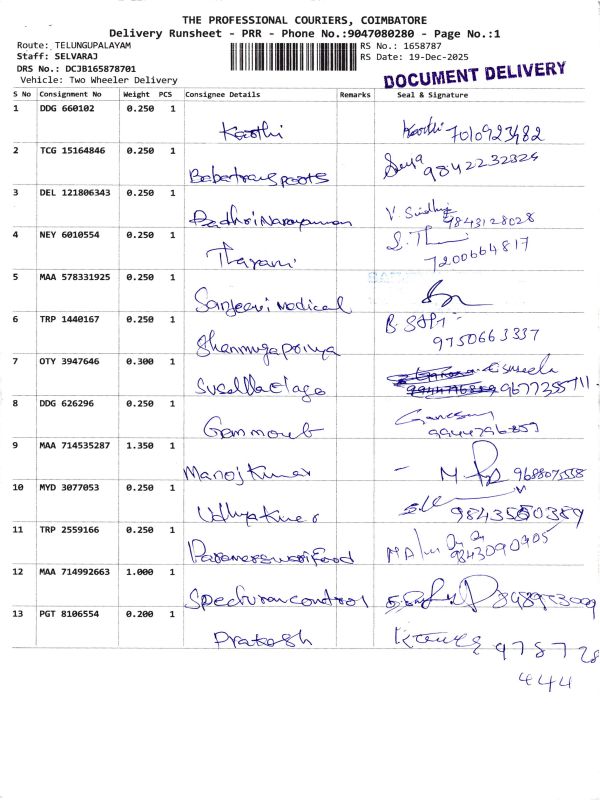 THE PROFESSIONAL COURIERS, COIMBATORE
Delivery Runsheet - PRR - Phone No.:9047080280 - Page No.:1
Route: TELUNGUPALAYAM RS No.: 1658787
Staff: SELVARAJ RS Date: 19-Dec-2025
DRS No.: DCJB165878701 DOCUMENT DELIVERY
Vehicle: Two Wheeler Delivery
S No Consignment No Weight PCS Consignee Details Remarks Seal & Signature
1 DDG 660102 0.250 1
Karthi Karthi 7010923482
2 TCG 15164846 0.250 1
9842232324
3 DEL 121806343 0.250 1
V Sindhuja
9843128028
4 NEY 6010554 0.250 1
Tharani
7200664817
5 MAA 578331925 0.250 1
Sanjeevi medical
6 TRP 1440167 0.250 1
Shanmugapriya
9750663337
7 OTY 3947646 0.300 1
8 DDG 626296 0.250 1
Ganesan
9944796857
9 MAA 714535287 1.350 1
Manoj Kumar
10 MYD 3077053 0.250 1
11 TRP 2559166 0.250 1
9843090905
12 MAA 714992663 1.000 1
Spectrumcontrol
13 PGT 8106554 0.200 1
Prakash 978728
444